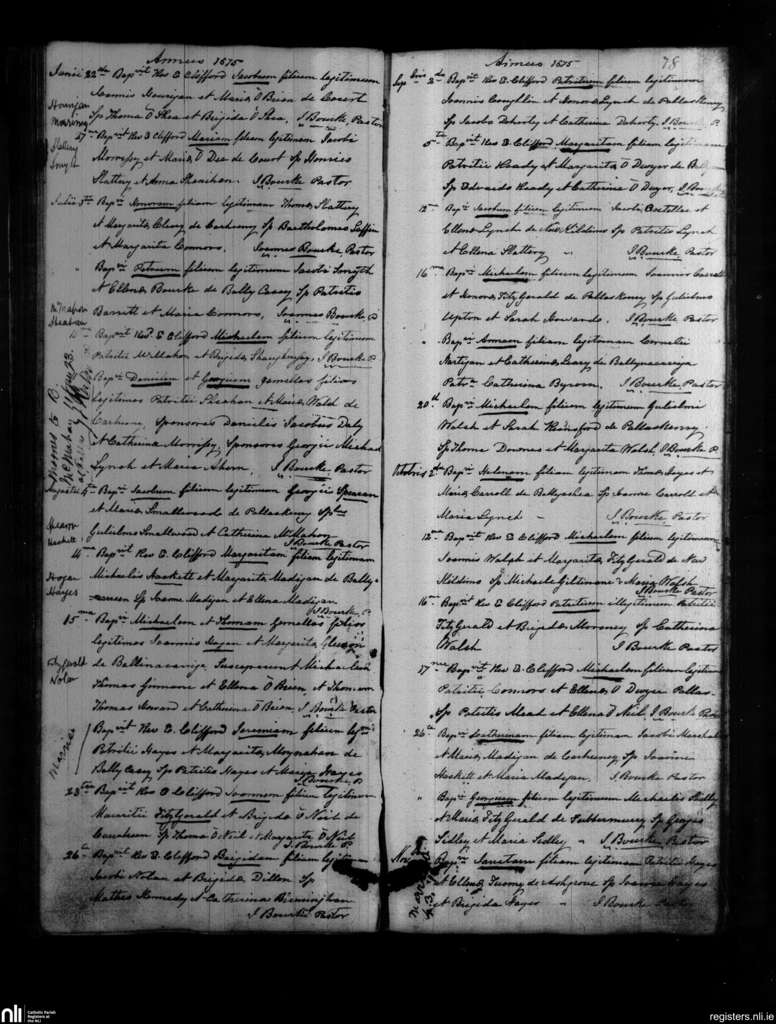 Annus 1875
Junii 22nd Bapt Rev E Clifford Jacobum filium legitimum
Joannis Hourigan et Maria O Brien de Court
Sp Thoma O Shea et Brigida O Shea, J Bourke, Pastor
27 Bapt Rev E Clifford Mariam filiam legitimam Jacobi
Morressy et Maria O Dea de Court Sp
Slattery et Anna Shanihan. J Bourke Pastor
Julii 5th Bap Honoram filiam legitimam Thoma Slattery
et Margarita Cleary de Sp Bartholomeo
et Margarita Connors. Joannes Bourke, Pastor
" Bap Petrum filium legitimum Jacobi Smyth
et Ellena Bourke de Bally Casey Sp Patritio
Barrett et Maria Connors, Joannes Bourke, P
Bapt Revd E Clifford Michaelem filium legitimum
Patritii McMahon et Brigida Shaughnessy, J Bourke P
Bap Danielem et Georgium gemellos filios
legitimos Patritii Sheahan et Maria Walsh de
Sponsores Danielis Jacobus Daly
et Catherina Morrissy, Sponsores Georgii Michael
Lynch et Maria Ahern, J Bourke Pastor
Augusti Bap Jacobum filium legitimum Georgii
et Maria Smallwood de Pallaskenry Sp
Gulielmo Smallwood et Catherina McMahon
J Bourke Pastor
14 Bapt Rev E Clifford Margaritam filiam legitimam
Michaelis Hackett et Margarita Madigan de Bally
Sp Joanne Madigan et Ellena Madigan
J Bourke, P.
15 Bap Michaelem et Thomam Gemellos filios
legitimos Joannis Hogan et Margarita
de Ballinacarriga, Susceperunt Michaelem
Thomas Ginnane et Ellena O Brien, et Thomam
Thomas et Catherina O Brien, J Bourke Pastor
Bapt Rev E Clifford Jeremiam filium
Patritii Hayes et Margarita Moynahan de
Bally Casey Sp Patritio Hayes et Maria Hayes
J Bourke P.
23 Bapt Rev E Clifford Joannem filium legitimum
Mauritii FitzGerald et Brigida O Neil de
Sp Thoma O Neil et Margarita O Neil
J Bourke P
26 Bapt Rev E Clifford Brigidam filiam legitimam
Jacobi Nolan et Brigida Dillon Sp
Kennedy et Catherina Birmingham
J Bourke Pastor
Hourigan
Morressy
Slattery
Smyth
McMahon
Sheahan
Hackett
Hogan
Hayes
Fitzgerald
Nolan
Married
Annus 1875
78
Sep 2nd Bapt Rev E Clifford Patritium filium legitimum
Joannis Coughlin et Honora Lynch de Pallaskenry,
Sp Jacobo Doherty et Catherina Doherty, J Bourke P.
5th Bapt Rev E Clifford Margaritam filiam legitimam
Patritii Keady et Margarita O Dwyer de
Sp Edwardo Keady et Catherina O Dwyer, J Bourke
12 Bap Jacobum filium legitimum Jacobi Costelloe et
Ellena Lynch de New Kildimo Sp Patritio Lynch
et Ellena Slattery " J Bourke Pastor
16 Bap Michaelem filium legitimum Joannis
et Honora FitzGerald de Pallaskenry Sp Gulielmo
Upton et Sarah J Bourke Pastor
" Bap Annam filiam legitimam Cornelii
Hartigan et Catherina Leary de Ballynacarriga
Catherina Byron. J Bourke, Pastor
20th Bap Michaelem filium legitimum Gulielmi
Walsh et Sarah de Pallaskenry
Sp Thoma Downes et Margarita Walsh, J Bourke P.
Octobris 2nd Bap Helenam filiam legitimam Thoma Hayes et
Maria Carroll de Ballyashea Sp Joanne Carroll et
Maria Lynch - J Bourke Pastor
12 Bapt Rev E Clifford Michaelem filium legitimum
Joannis Walsh et Margarita FitzGerald de New
Kildimo Sp Michaele Giltinane et Maria Walsh
J Bourke Pastor
16 Bapt Rev E Clifford Patritium illegitimum Patritii
FitzGerald et Brigida Moroney Sp Catherina
Walsh J Bourke Pastor
17 Bapt Rev E Clifford Michaelem filium legitimum
Patritii Connors et Ellena O Dwyer
Sp Patritio Meat et Ellena O Neil J Bourke
26 Bap Catherinam filiam legitimam Jacobi
et Maria Madigan de Sp Joanne
Hackett et Maria Madigan J Bourke Pastor
" Bap Georgium filium legitimum Michaelis
et Maria FitzGerald de Sp Georgio
Sidley et Maria Sidley - J Bourke Pastor
Bap filiam legitimam Patritii Hayes
et Ellena de Ashgrove Sp Joanne Hayes
et Brigida Hayes - J Bourke Pastor
nli
Catholic Parish
Registers at
the NLI
registers.nli.ie